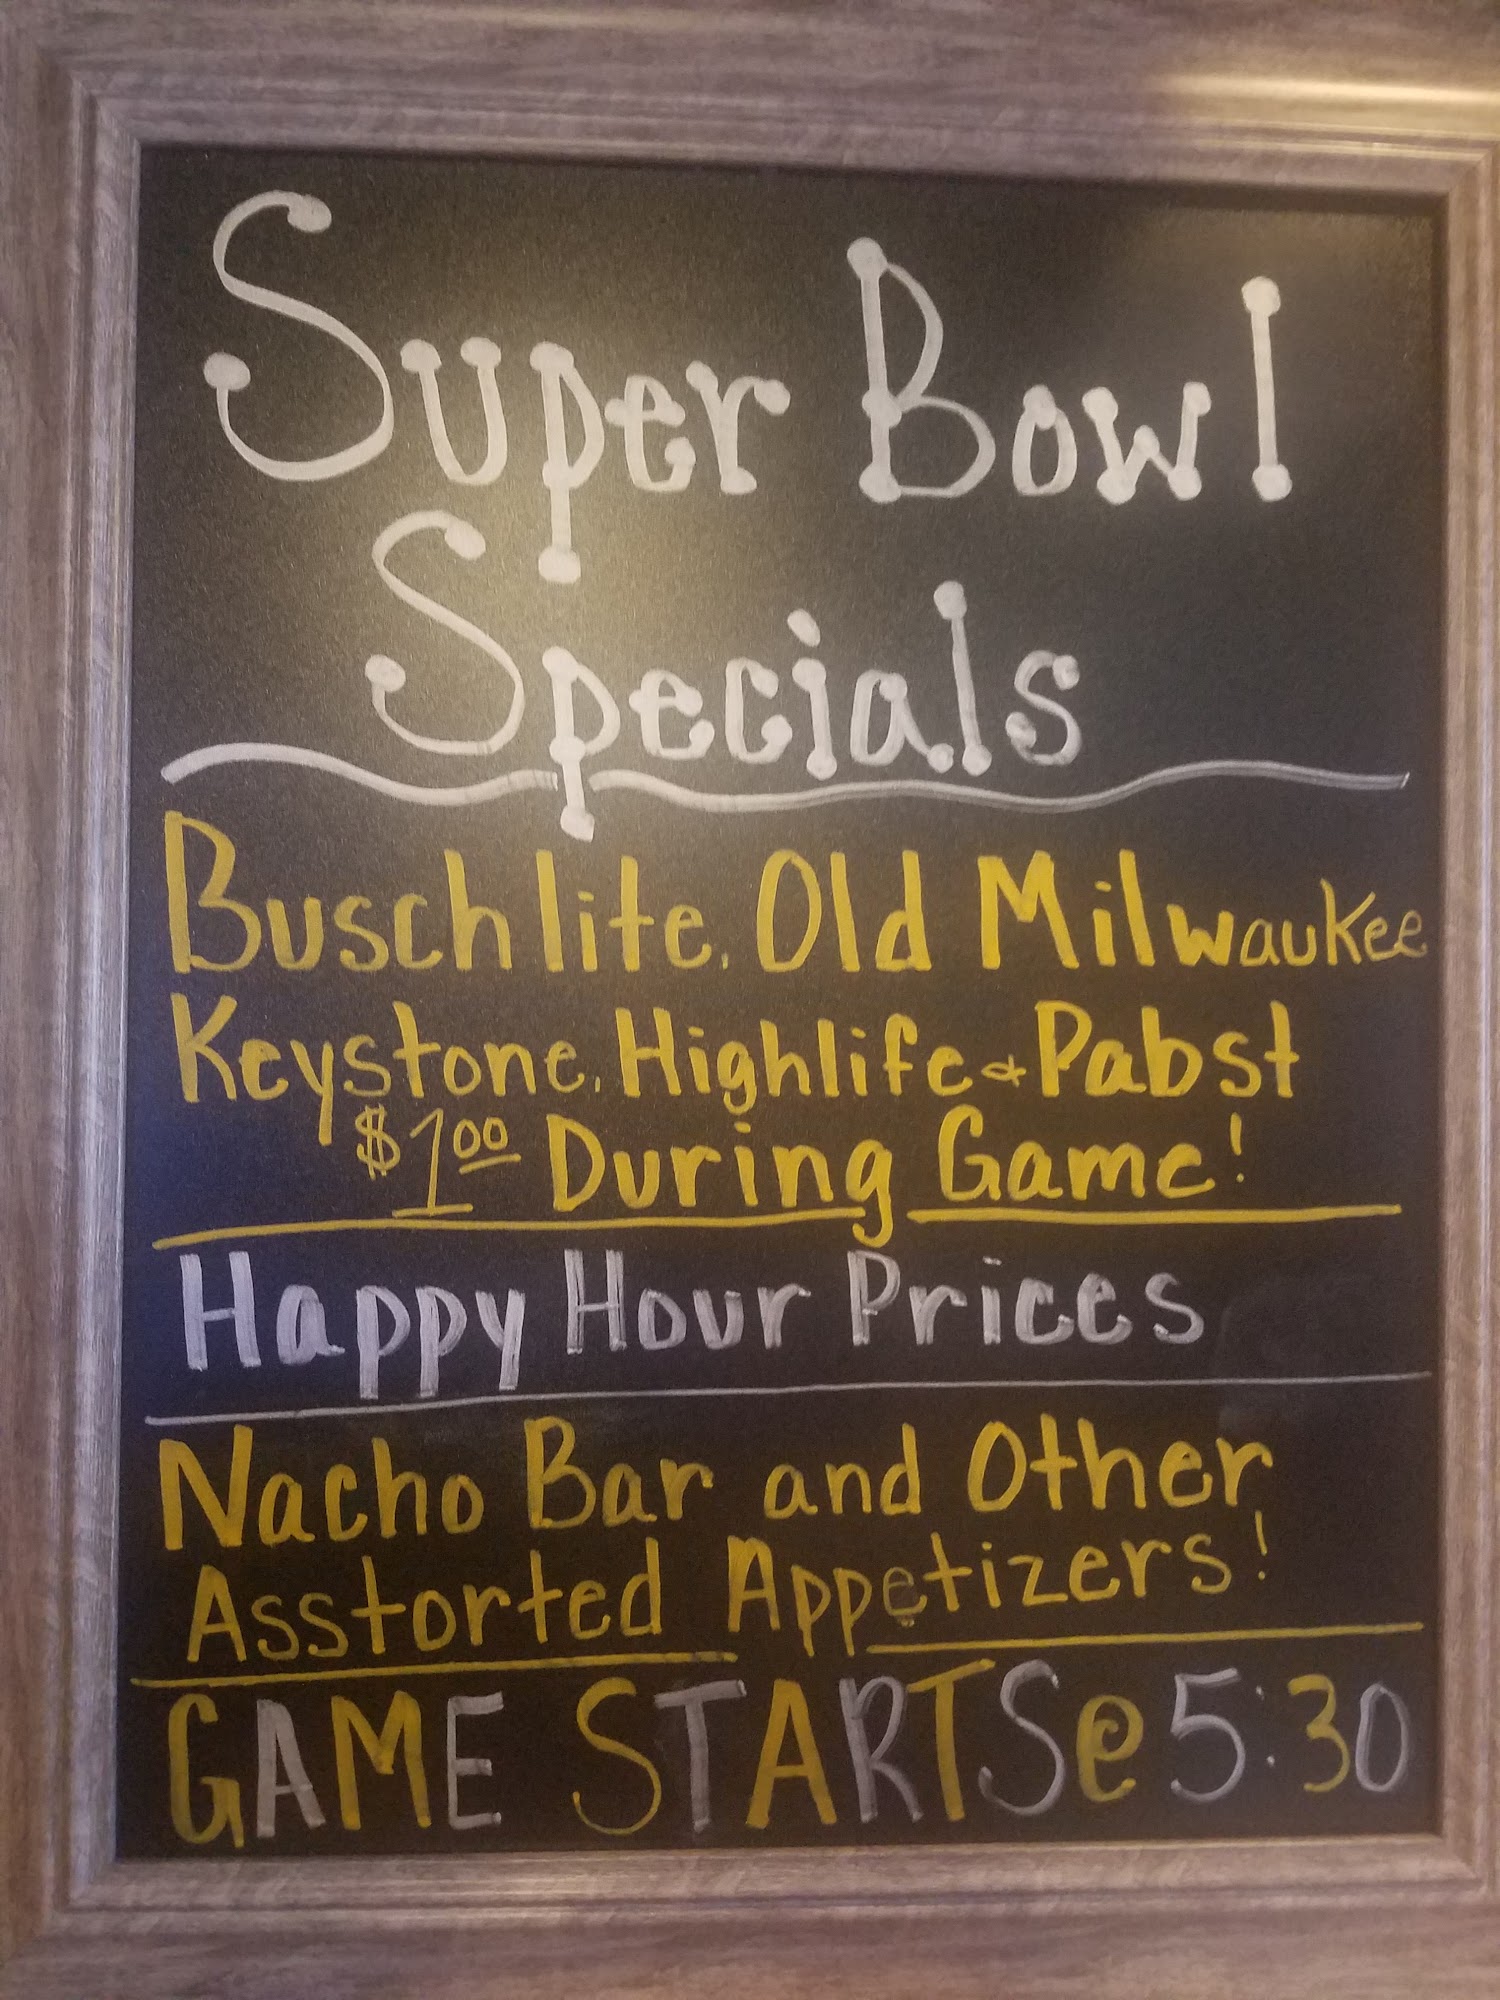 Super Bowl
Specials
Busch lite, Old Milwaukee
Keystone, Highlife & Pabst
$1.00 During Game!
Happy Hour Prices
Nacho Bar and Other
Asstorted Appetizers!
GAME STARTS @ 5:30